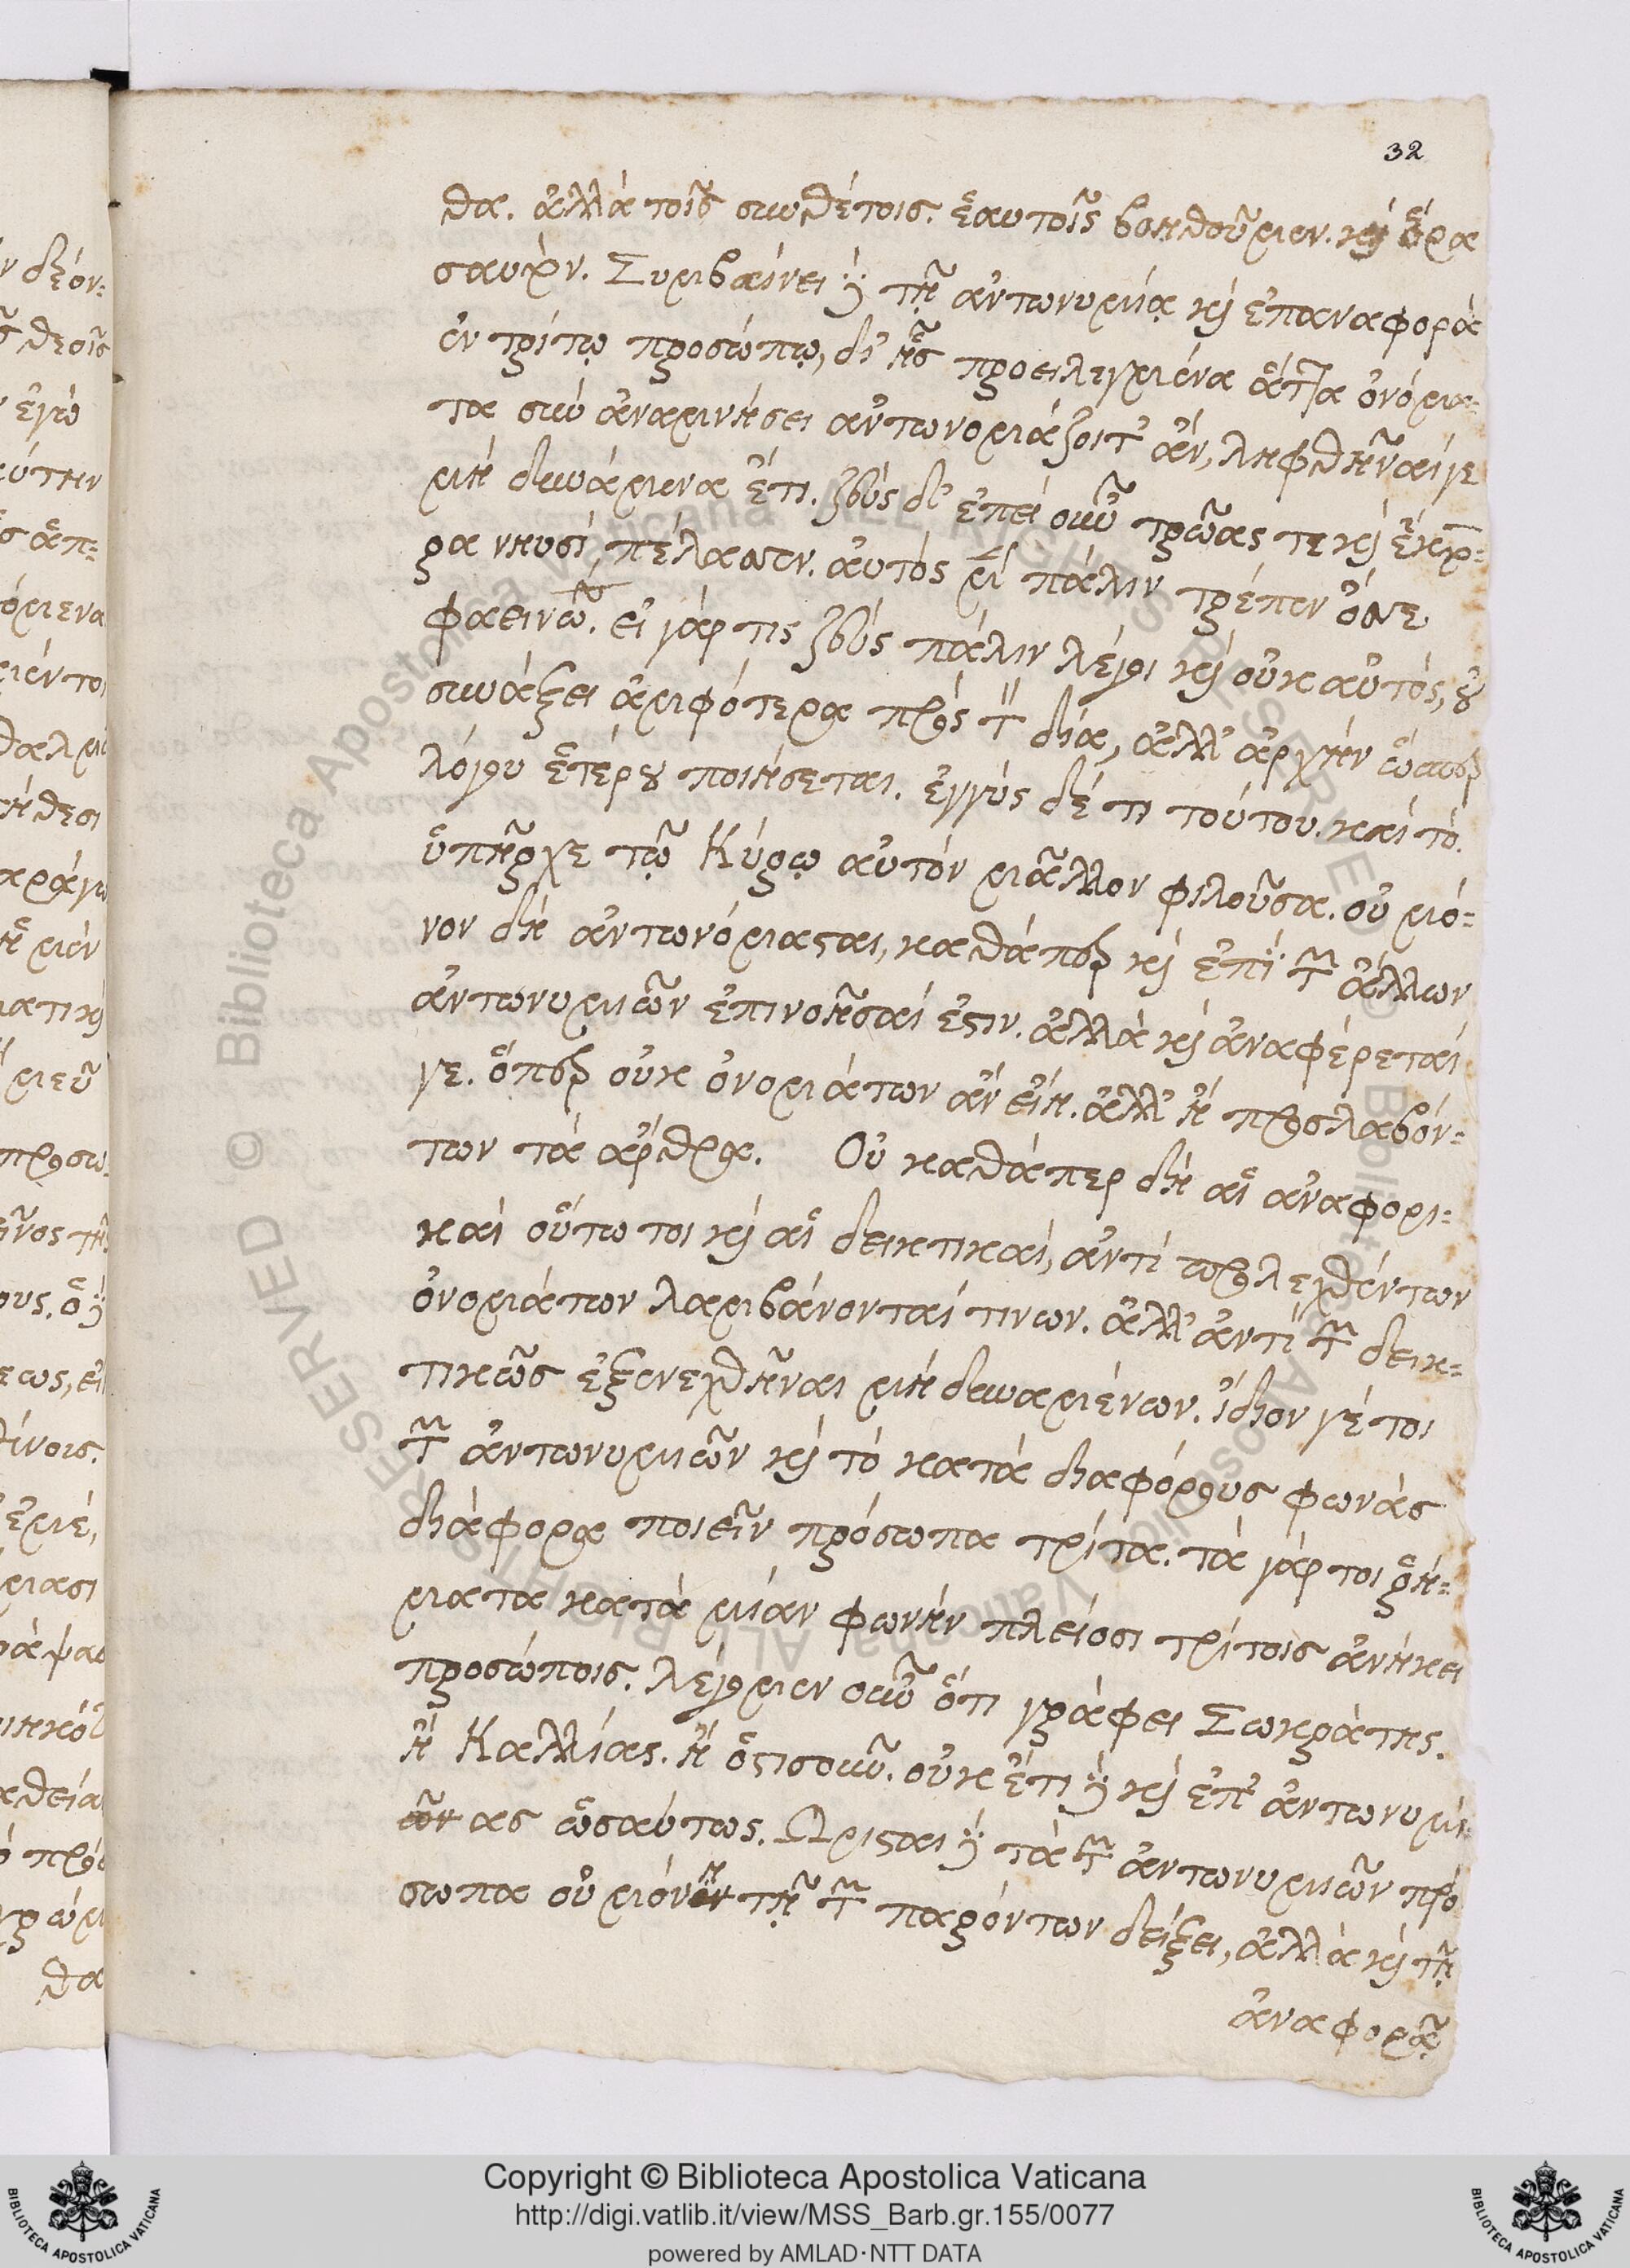 32
θα. ἀλλὰ τοῖς συνθέτοις. ἑαυτοῖς βοηθοῦμεν. καὶ
σαυτὸν. Συμβαίνει δὲ τῇ ἀντωνυμίᾳ καὶ ἐπαναφορὰ
ἐν τρίτῳ προσώπῳ, δι' ἧς προειλεγμένα ἅττα ὀνόμα=
τα σὺν ἀναμνήσει ἀντωνομάζοιτ' ἂν, ληφθῆναί γε
μὴ δυνάμενα ἔτι. ζεύς δ' ἐπεὶ οὖν τρῶας τε καὶ ἕκτο=
ρα νηυσὶ, πέλασσεν. αὐτός μὲν πάλιν τρέπεν ὄσσε
φαεινώ. εἰ γάρ τις ζεύς πάλιν λέγοι καὶ οὐκ αὐτός, οὐ
συνάξει ἀμφότερα πρὸς τὸν δία, ἀλλ' ἀρχὴν ὥσπερ
λόγου ἑτέρου ποιήσεται. ἐγγύς δέ τι τούτου. καὶ τὸ.
ὑπῆρχε τῷ Κύρῳ αὐτὸν μᾶλλον φιλοῦσα. οὐ μό=
νον δὴ ἀντωνόμασται, καθάπερ καὶ ἐπὶ τῶν ἄλλων
ἀντωνυμιῶν ἐπινοῆσαί ἐστιν. ἀλλὰ καὶ ἀναφέρεταί
γε. ὅπερ οὐκ ὀνομάτων ἂν εἴη. ἀλλ' ἢ προσλαβόν=
των τὰ ἄρθρα. Οὐ καθάπερ δὴ αἱ ἀναφορι=
καὶ οὕτω τοι καὶ αἱ δεικτικαὶ, ἀντὶ προλεχθέντων
ὀνομάτων λαμβάνονταί τινων. ἀλλ' ἀντὶ τῶν δεικ=
τικῶς ἐξενεχθῆναι μὴ δυναμένων. ἴδιον γέ τοι
τῶν ἀντωνυμιῶν καὶ τὸ κατὰ διαφόρους φωνὰς
διάφορα ποιεῖν πρόσωπα τρίτα. τὰ γάρ τοι ῥή=
ματα κατὰ μίαν φωνὴν πλείοσι τρίτοις ἀνήκει
προσώποις. λέγομεν οὖν ὅτι γράφει Σωκράτης.
ἢ Καλλίας. ἢ ὅστισοῦν. οὐκ ἔτι δὲ καὶ ἐπ' ἀντωνυμί=
ας ὡσαύτως. Ὥρισται δὲ τὰ τῶν ἀντωνυμιῶν πρό
σωπα οὐ μόνον τῇ τῶν παρόντων δείξει, ἀλλὰ καὶ τῇ
ἀναφορᾷ
Copyright © Biblioteca Apostolica Vaticana
http://digi.vatlib.it/view/MSS_Barb.gr.155/0077
powered by AMLAD·NTT DATA